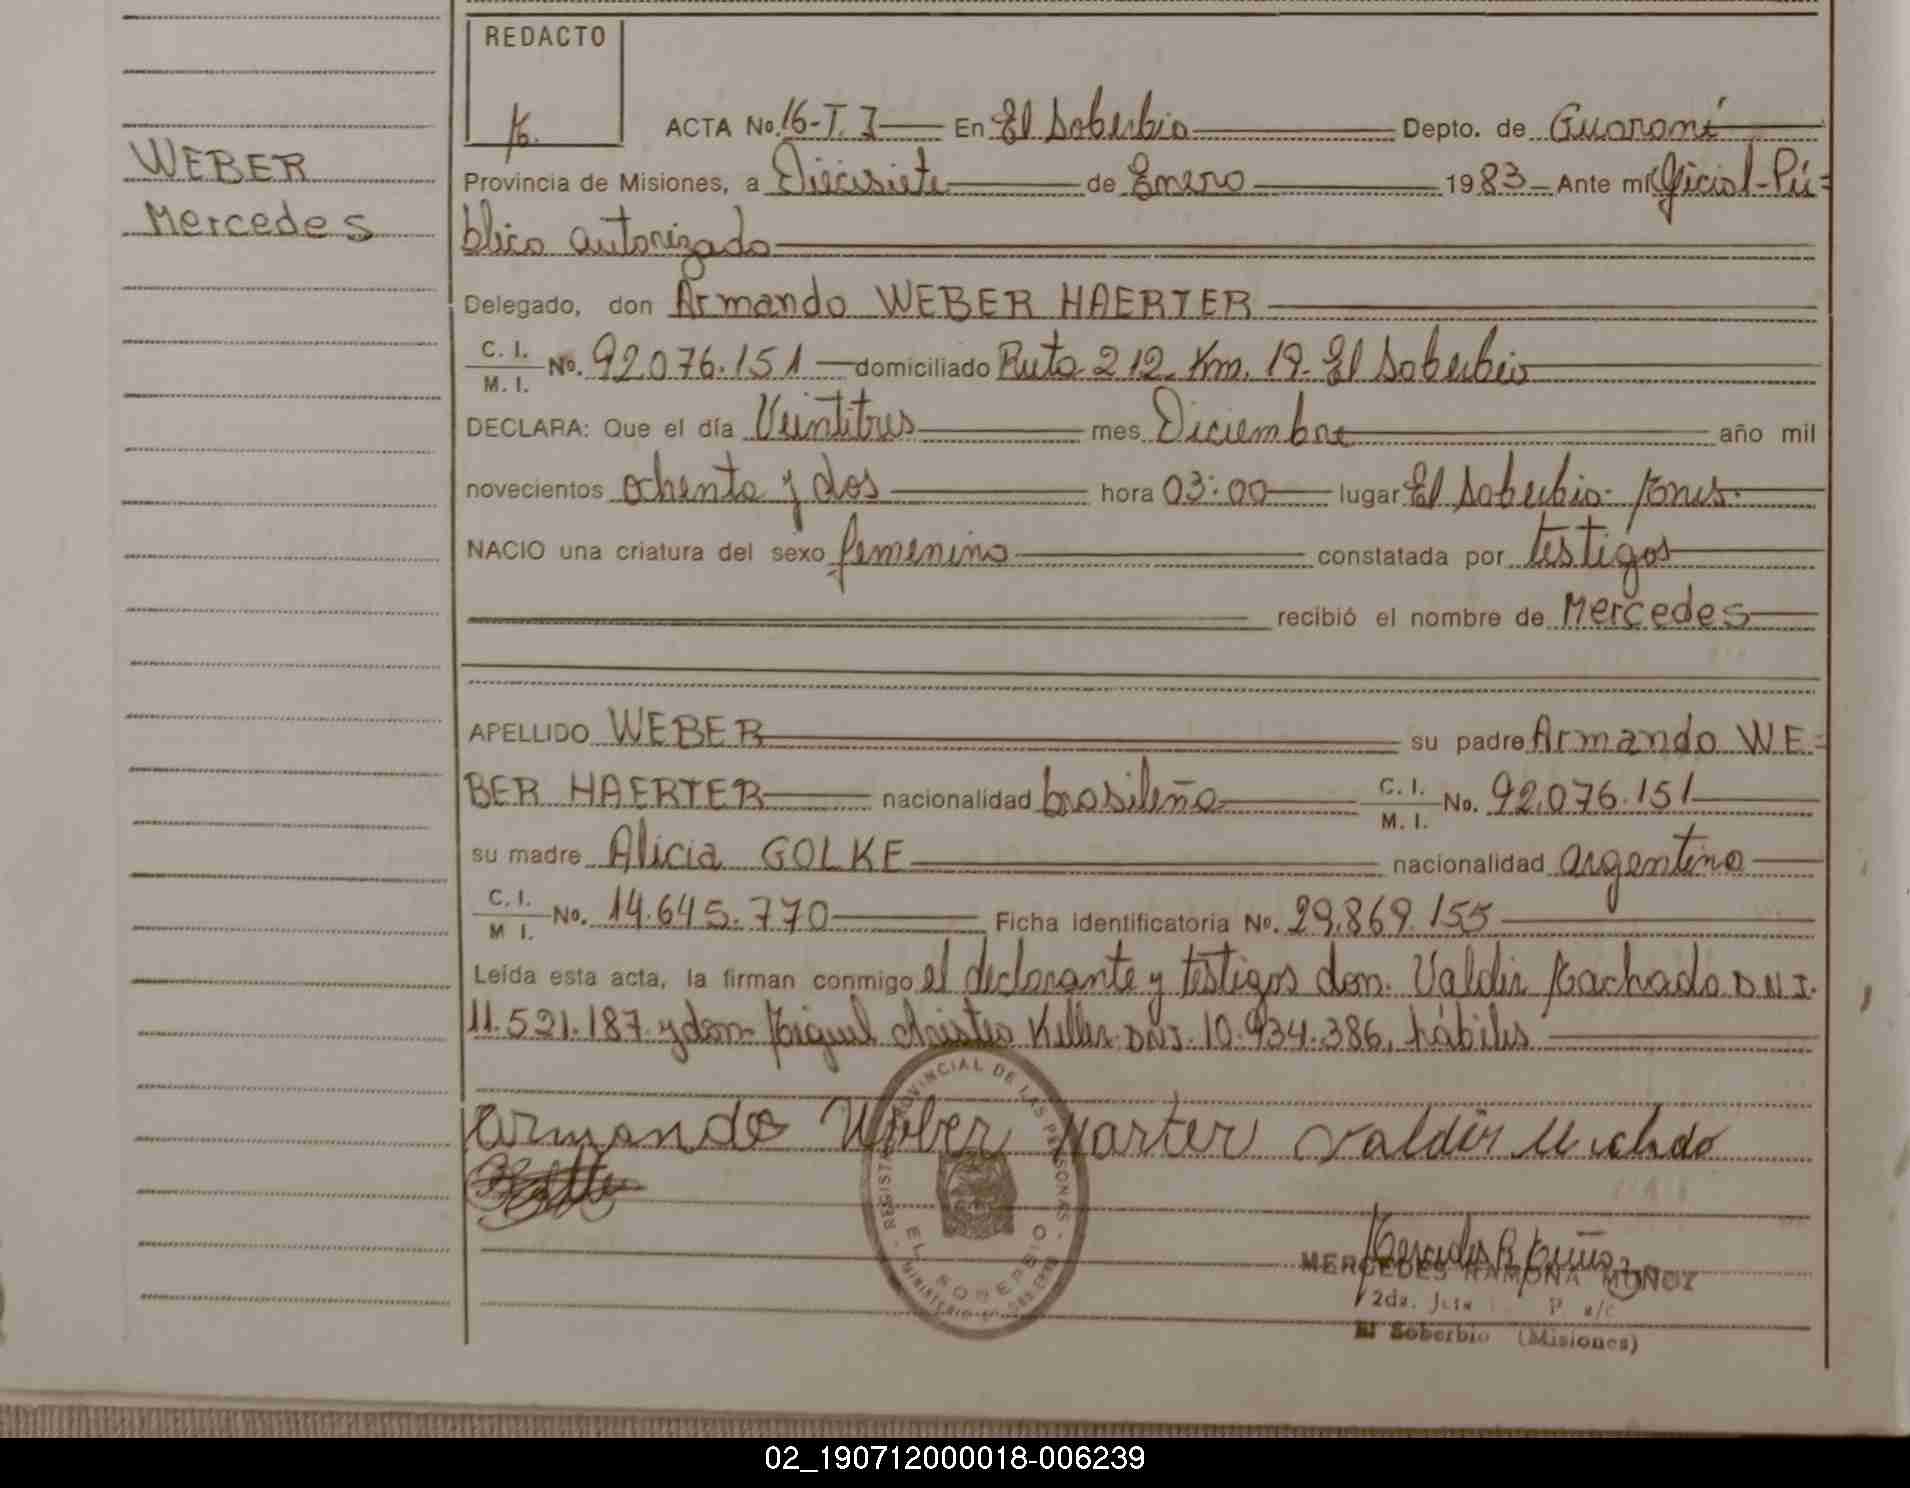 REDACTO
WEBER
Mercedes
ACTA No. 16-T. I En El Soberbio Depto. de Guaraní
Provincia de Misiones, a Diecisiete de Enero 1983 Ante mi Oficial-Pú=
blico autorizado
Delegado, don Armando WEBER HAERTER
C. I.
M. I. No. 92.076.151 domiciliado Ruta 212. Km. 19. El Soberbio
DECLARA: Que el día Veintitres mes Diciembre año mil
novecientos ochenta y dos hora 03:00 lugar El Soberbio- Mnes.
NACIO una criatura del sexo femenino constatada por testigos
recibió el nombre de Mercedes
APELLIDO WEBER su padre Armando WE=
BER HAERTER nacionalidad brasileña C. I. M. I. No. 92.076.151
su madre Alicia GOLKE nacionalidad argentina
C. I.
M I. No. 14.645.770 Ficha identificatoria No. 29.869.155
Leída esta acta, la firman conmigo el declarante y testigos don. Valdir Machado D.N.I.
11.521.187 y don Miguel Keller D.N.I. 10.934.386, hábiles
Armando Weber Harter Valdir
REGISTRO PROVINCIAL DE LAS PERSONAS
EL SOBERBIO
MERCEDES RAMONA MUÑOZ
2da.
El Soberbio (Misiones)
02_190712000018-006239